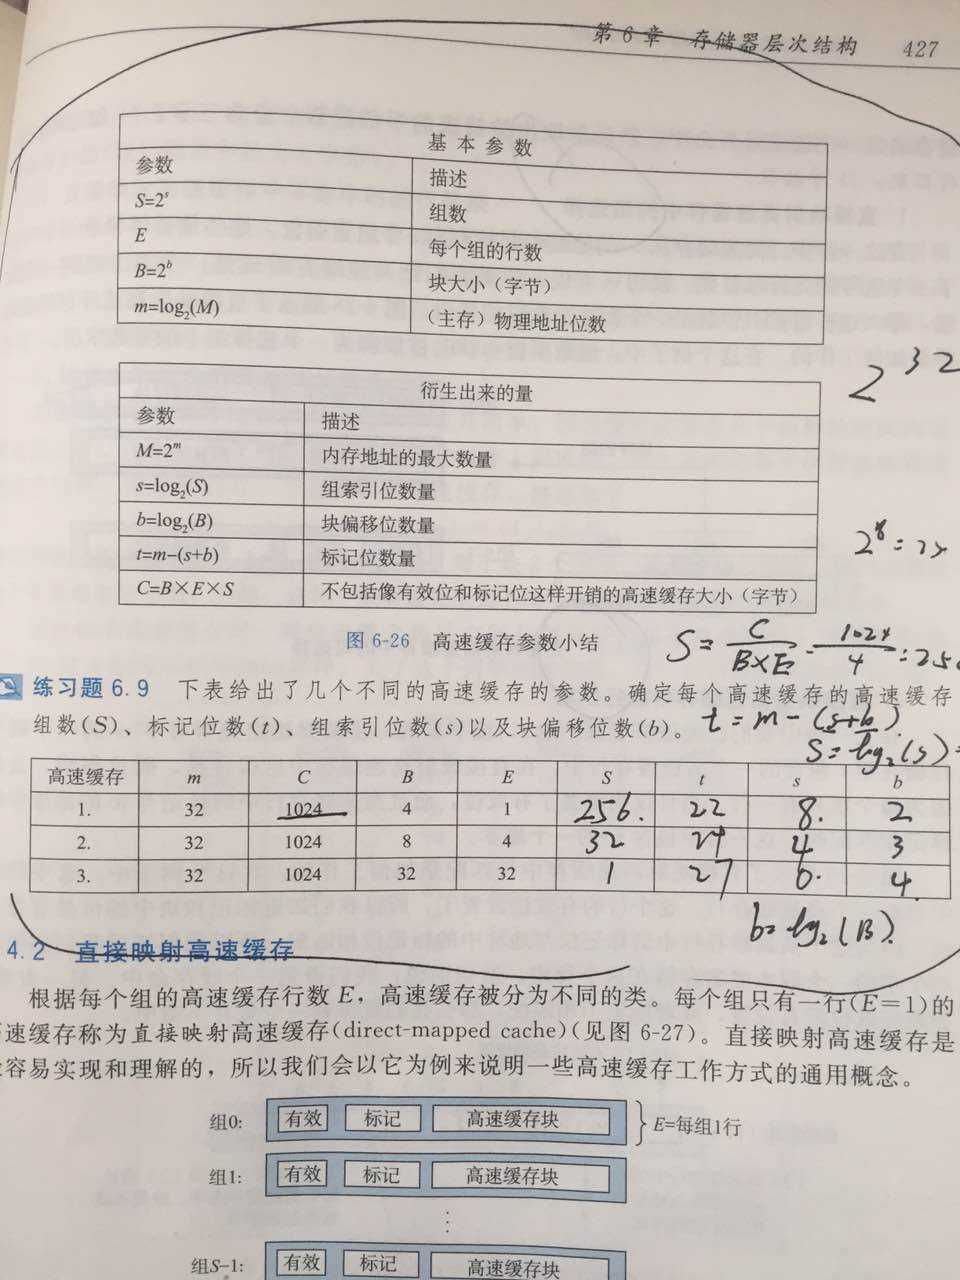 第6章 存储器层次结构 427
基本参数
参数 描述
S=2^s 组数
E 每个组的行数
B=2^b 块大小（字节）
m=log₂(M) （主存）物理地址位数
2^32
衍生出来的量
参数 描述
M=2^m 内存地址的最大数量
s=log₂(S) 组索引位数量
b=log₂(B) 块偏移位数量
t=m-(s+b) 标记位数量
C=B×E×S 不包括像有效位和标记位这样开销的高速缓存大小（字节）
2^8 =
图 6-26 高速缓存参数小结
S = C/(B×E) = 1024/4 = 256
练习题 6.9 下表给出了几个不同的高速缓存的参数。确定每个高速缓存的高速缓存
组数(S)、标记位数(t)、组索引位数(s)以及块偏移位数(b)。
t = m - (s+b).
S = log₂(s) =
高速缓存 m C B E S t s b
1. 32 1024 4 1 256. 22 8. 2
2. 32 1024 8 4 32 24 4 3
3. 32 1024 32 32 1 27 0. 4
b = log₂(B).
4.2 直接映射高速缓存
根据每个组的高速缓存行数 E，高速缓存被分为不同的类。每个组只有一行(E=1)的
速缓存称为直接映射高速缓存(direct-mapped cache)(见图 6-27)。直接映射高速缓存是
容易实现和理解的，所以我们会以它为例来说明一些高速缓存工作方式的通用概念。
组0: 有效 标记 高速缓存块 E=每组1行
组1: 有效 标记 高速缓存块
⋮
组S-1: 有效 标记 高速缓存块